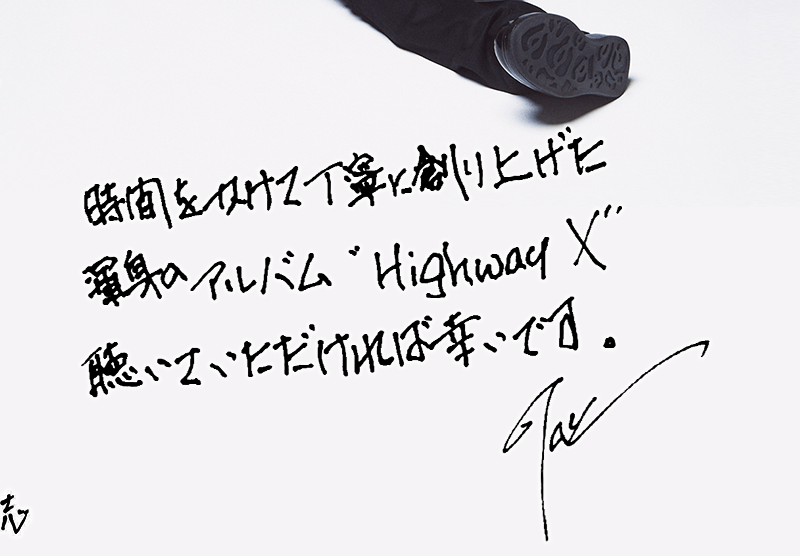 時間をかけて丁寧に創り上げた
渾身のアルバム"Highway X"
聴いていただければ幸いです。
Tak
志